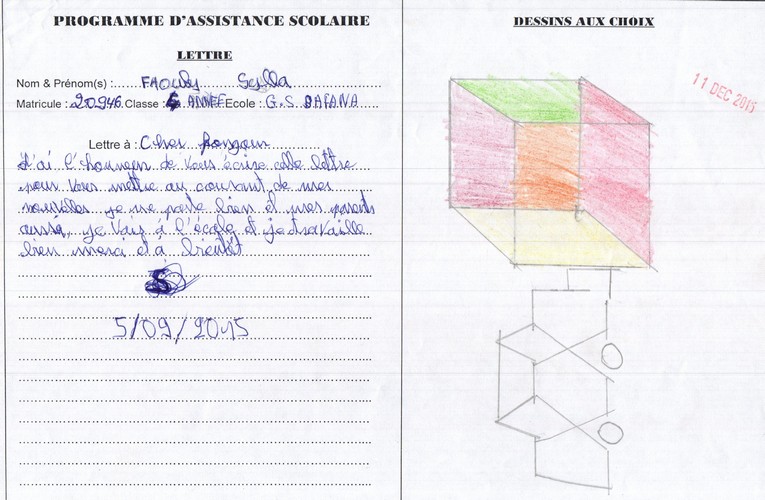 PROGRAMME D'ASSISTANCE SCOLAIRE
LETTRE
Nom & Prénom(s) : Sylla
Matricule : 20946 Classe : 5 ANNEE Ecole : G.S BAFANA
Lettre à : Cher
J'ai l'honneur de vous écrire cette lettre
pour vous mettre au courant de mes
nouvelles je me porte bien et mes parents
aussi, je vais à l'école et je travaille
bien merci et à bientôt
5/09/2015
DESSINS AUX CHOIX
11 DEC 2015